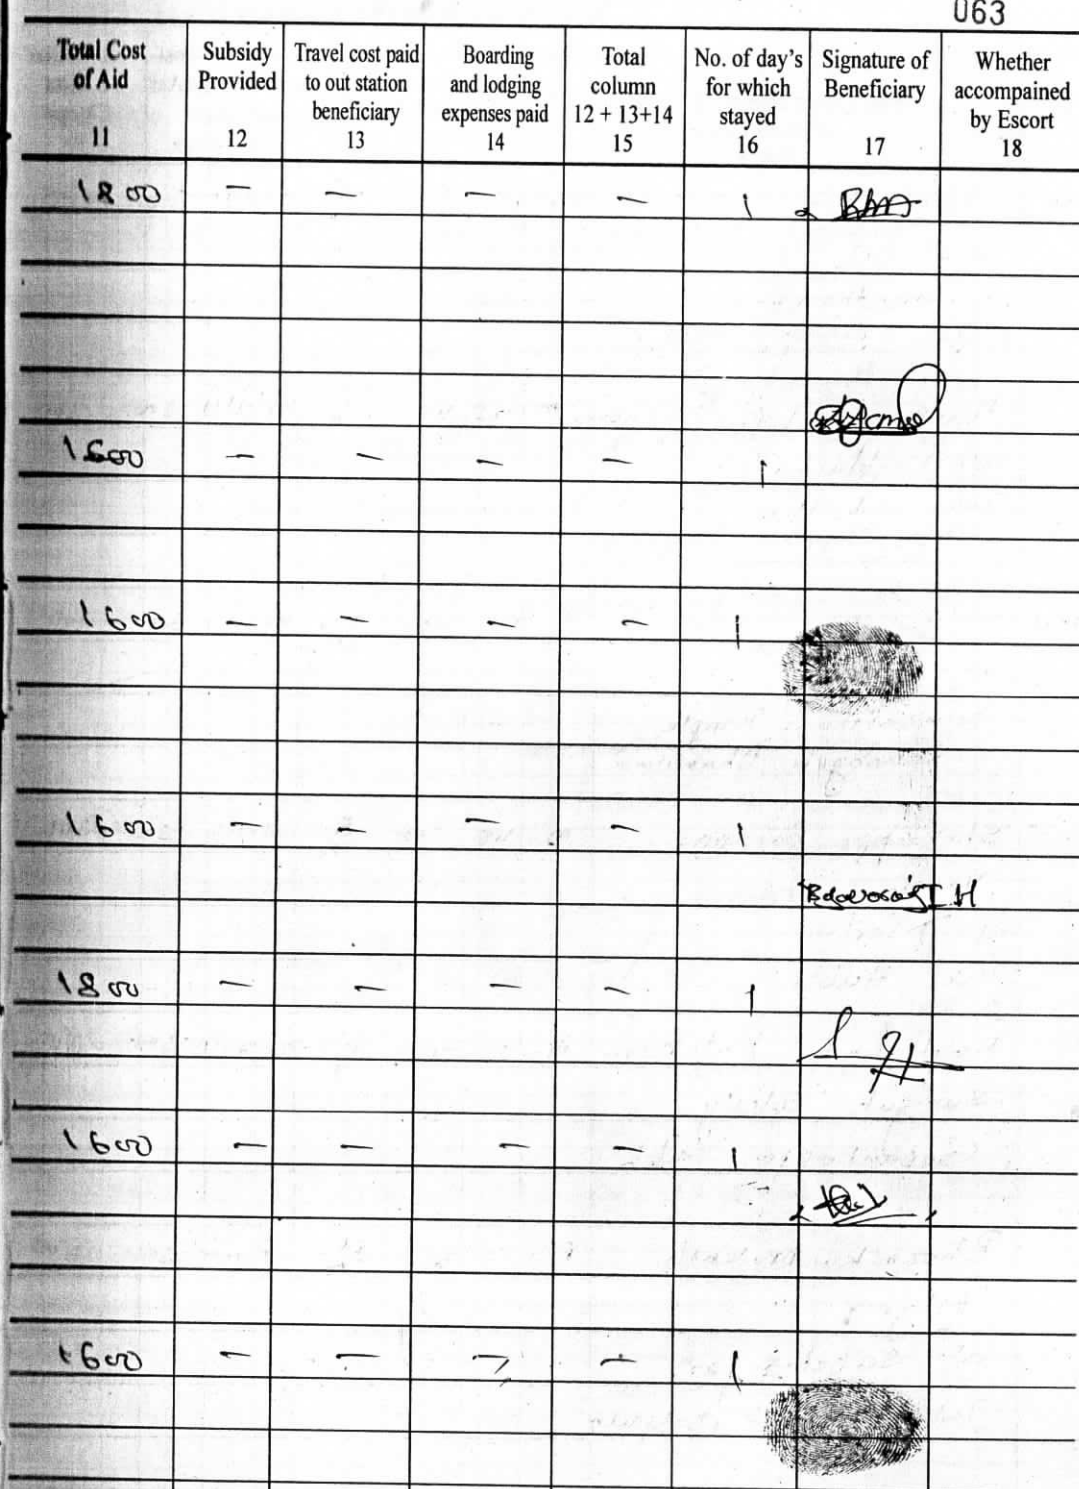 063
Total Cost of Aid 11 | Subsidy Provided 12 | Travel cost paid to out station beneficiary 13 | Boarding and lodging expenses paid 14 | Total column 12 + 13+14 15 | No. of day's for which stayed 16 | Signature of Beneficiary 17 | Whether accompained by Escort 18
1800 — — — — 1
1600 — — — — 1
1600 — — — — 1
1600 — — — — 1
1800 — — — — 1
1600 — — — — 1
1600 — — — — 1